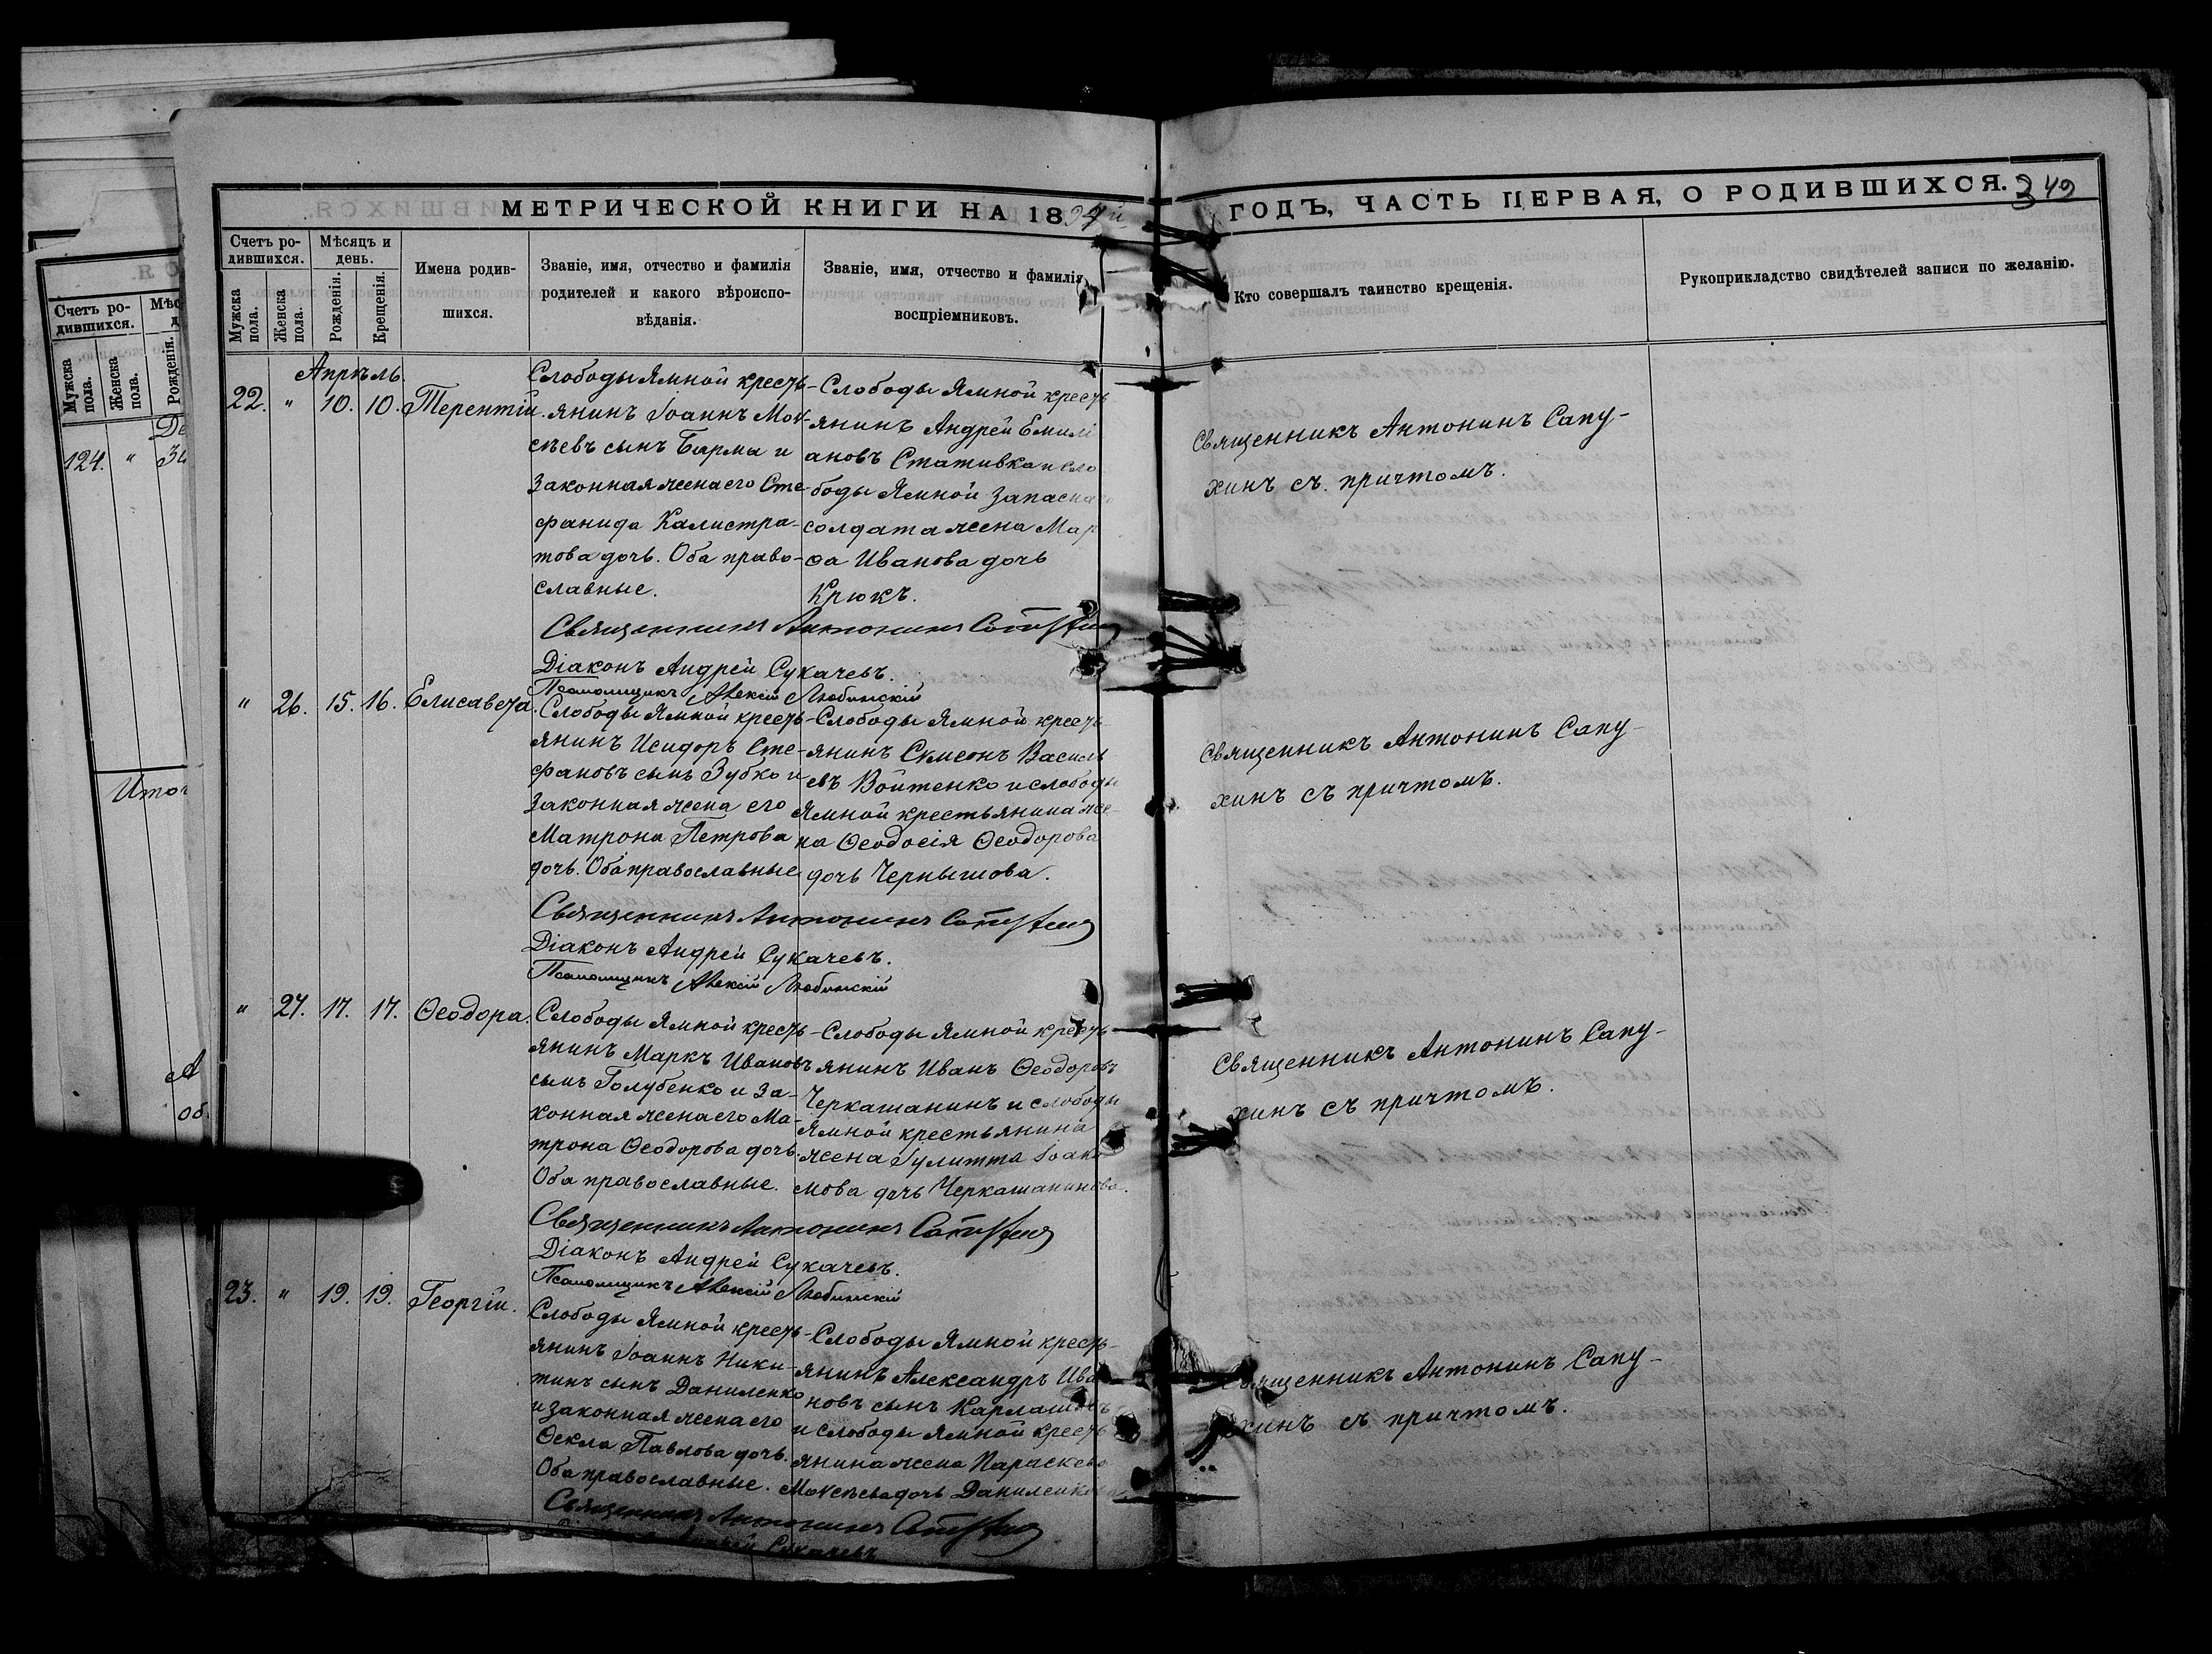 МЕТРИЧЕСКОЙ КНИГИ НА 1894й ГОДЪ, ЧАСТЬ ПЕРВАЯ, О РОДИВШИХСЯ. 349
Счетъ ро-
дившихся.
Мужска
пола.
Женска
пола.
Мѣсяцъ и
день.
Рожденія.
Крещенія.
Имена родив-
шихся.
Званіе, имя, отчество и фамилія
родителей и какого вѣроиспо-
вѣданія.
Званіе, имя, отчество и фамилія
воспріемниковъ.
Кто совершалъ таинство крещенія.
Рукоприкладство свидѣтелей записи по желанію.
Счетъ ро-
дившихся.
Мужска
пола.
Женска
пола.
Рожденія.
124. "
Апрѣль.
22. " 10. 10. Терентій.
Слободы Ямной кресть-
янинъ Іоаннъ Моѵ-
сѣевъ сынъ Бирма и
законная жена его Сте-
фанида Калистра-
това дочь. Оба право-
славные.
Слободы Ямной кресть
янинъ Андрей Емилі
ановъ Стативка и сло
боды Ямной запасна
солдата жена Мар
ѳа Иванова дочь
Крюкъ.
Священникъ Антонинъ Сапу-
хинъ съ причтомъ.
Священникъ Антонинъ Сапухинъ
Діаконъ Андрей Сукачевъ.
Псаломщикъ Алексій Любинскій
" 26. 15. 16. Елисавета.
Слободы Ямной кресть-
янинъ Исидоръ Сте-
фановъ сынъ Зубко и
законная жена его
Матрона Петрова
дочь. Оба православные
Слободы Ямной кресть-
янинъ Сѵмеонъ Василь
евъ Войтенко и слободы
Ямной крестьянина же-
на Ѳеодосія Ѳеодорова
дочь Чернышова.
Священникъ Антонинъ Сапу-
хинъ съ причтомъ.
Священникъ Антонинъ Сапухинъ
Діаконъ Андрей Сукачевъ.
Псаломщикъ Алексій Любинскій
" 27. 17. 17. Ѳеодора.
Слободы Ямной кресть-
янинъ Маркъ Ивановъ
сынъ Голубенко и за-
конная жена его Ма-
трона Ѳеодорова дочь.
Оба православные.
Слободы Ямной кресть-
янинъ Иванъ Ѳеодоровъ
Черкашанинъ и слободы
Ямной крестьянина
жена Іулитта Іоаки
мова дочь Черкашанинова.
Священникъ Антонинъ Сапу-
хинъ съ причтомъ.
Священникъ Антонинъ Сапухинъ
Діаконъ Андрей Сукачевъ.
Псаломщикъ Алексій Любинскій
23. " 19. 19. Георгій.
Слободы Ямной кресть-
янинъ Іоаннъ Ники-
тинъ сынъ Даниленко
и законная жена его
Ѳекла Павлова дочь.
Оба православные.
Слободы Ямной кресть-
янинъ Александръ Ива
новъ сынъ Карлашовъ
и слободы Ямной кресть
янина жена Параскева
Моѵсѣева дочь Даниленкова
Священникъ Антонинъ Сапу-
хинъ съ причтомъ.
Священникъ Антонинъ Сапухинъ
Сукачевъ